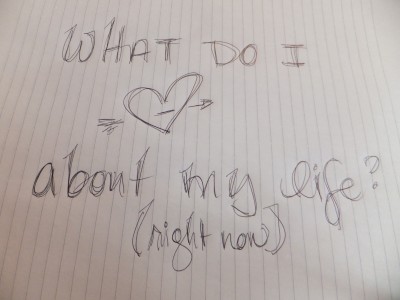 WHAT DO I
about my life?
(right now)